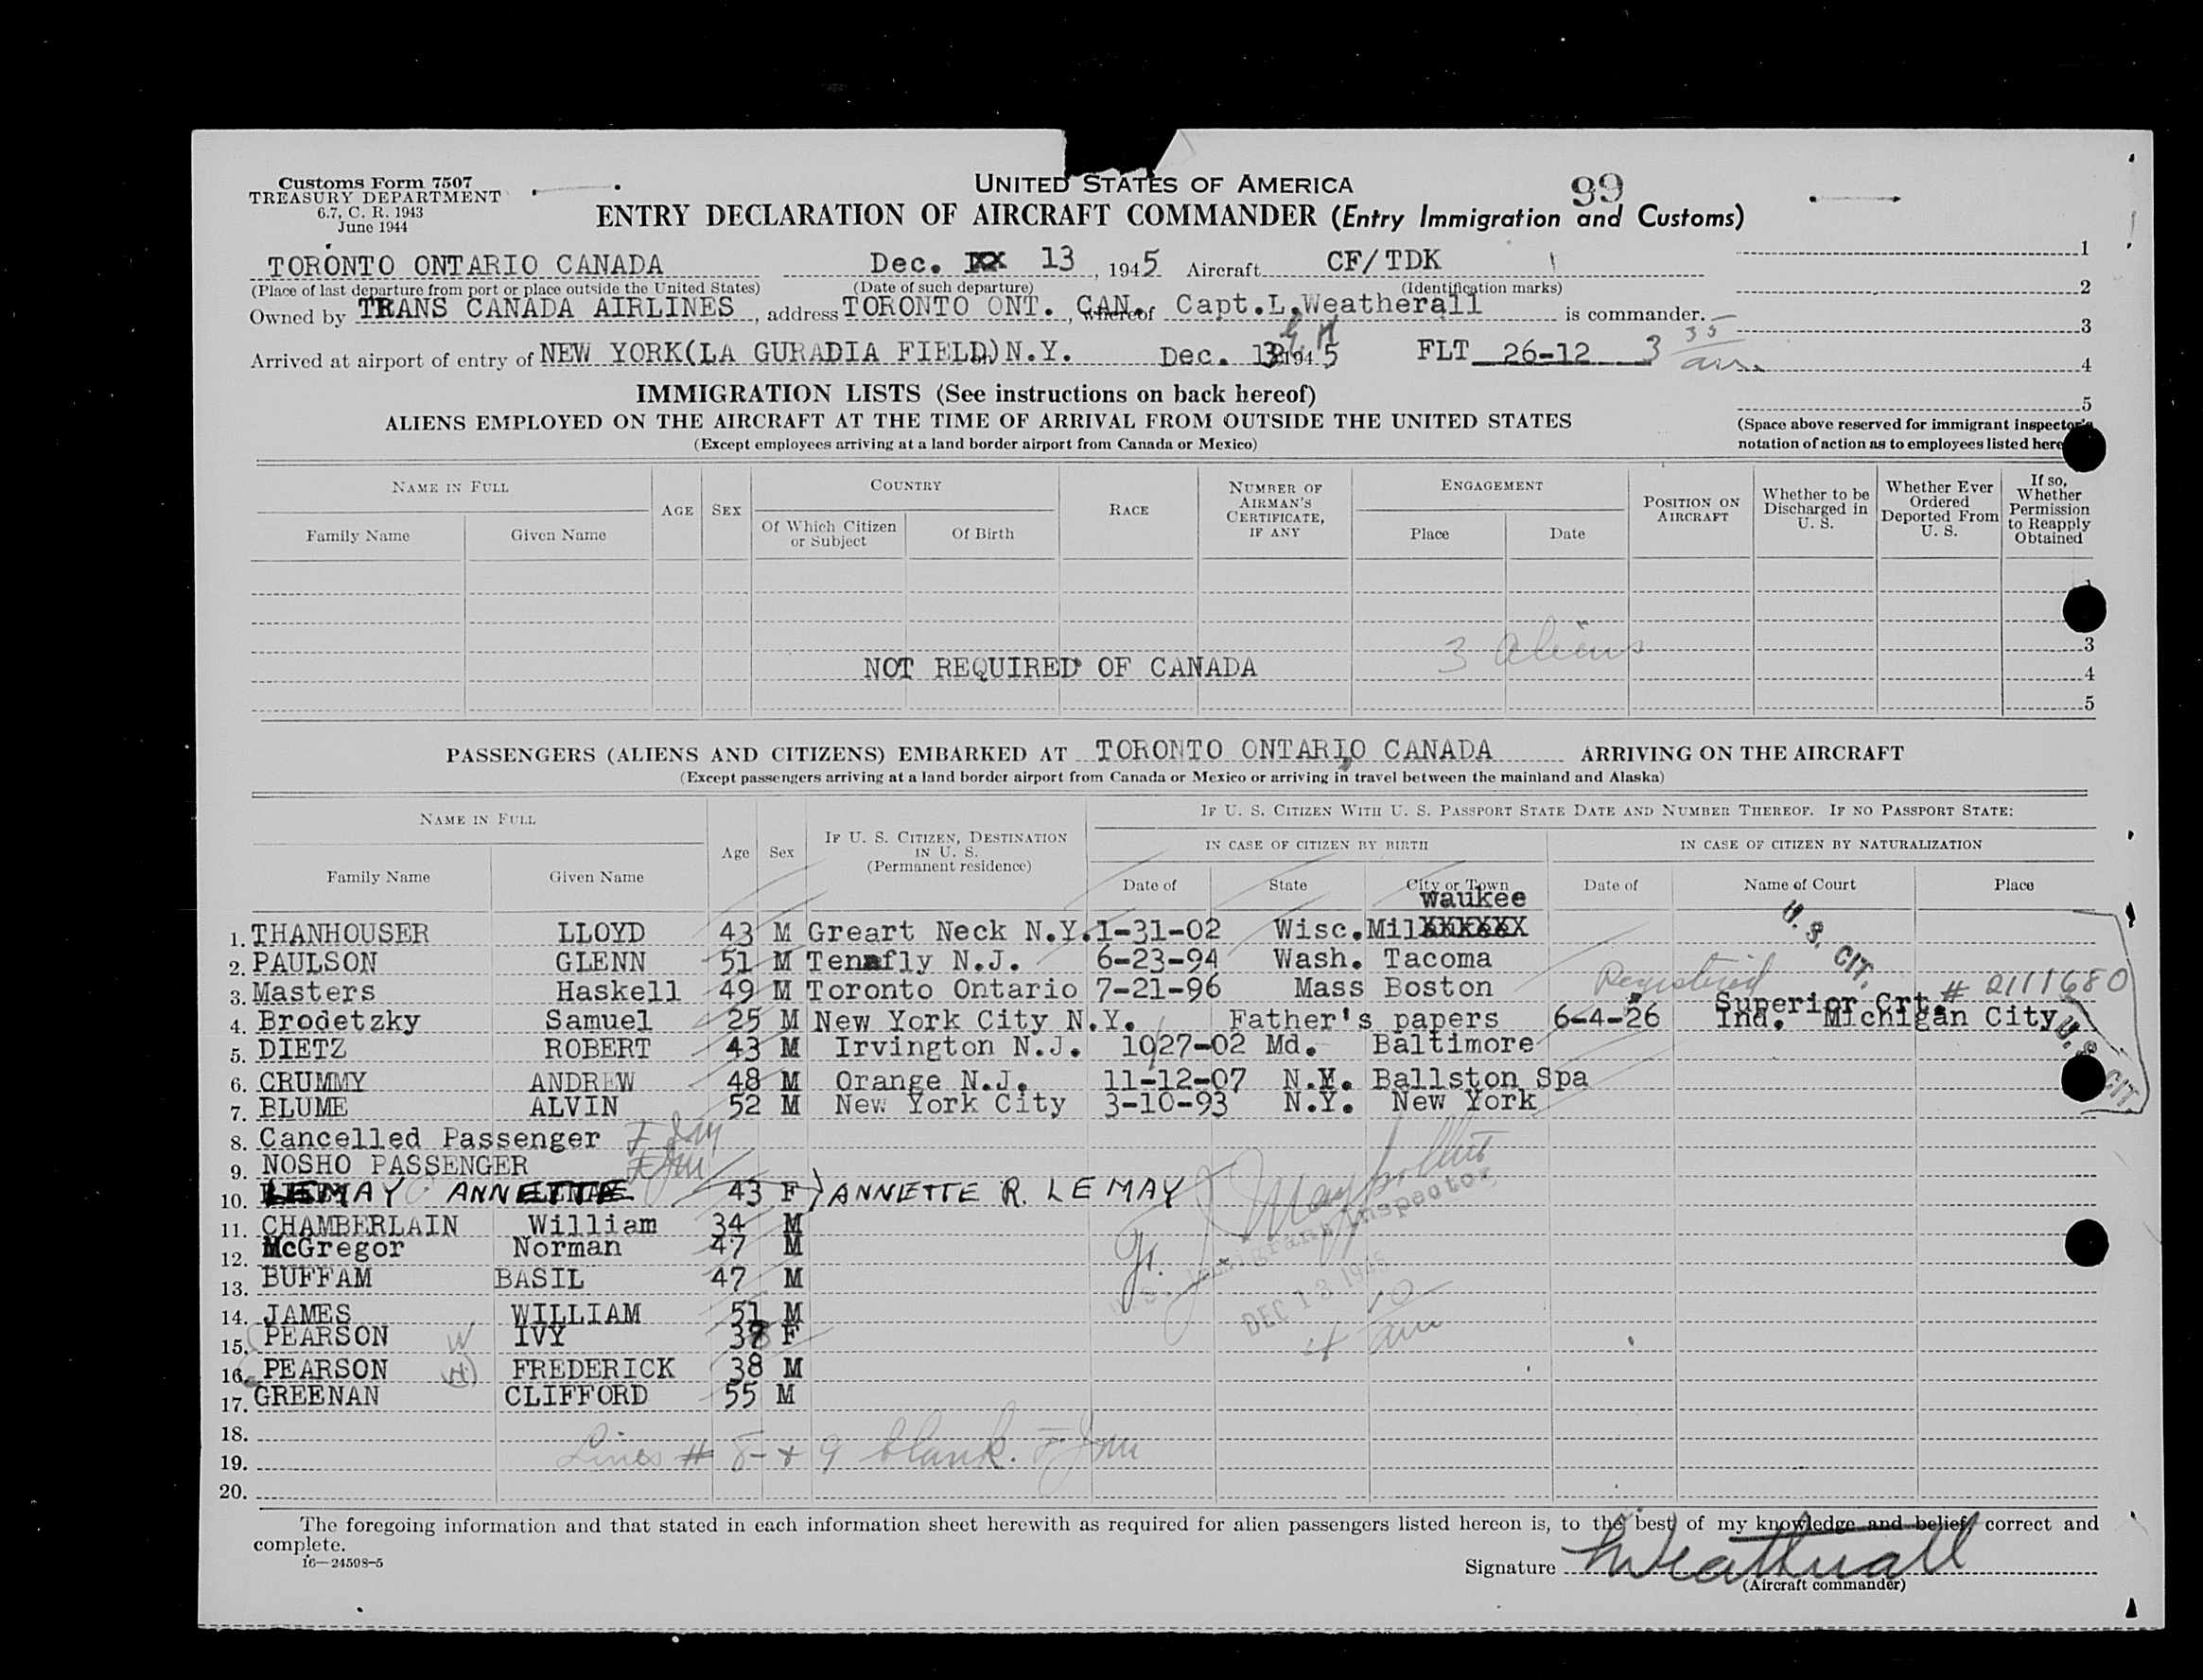 Customs Form 7507
TREASURY DEPARTMENT
6.7, C. R. 1943
June 1944
UNITED STATES OF AMERICA
99
ENTRY DECLARATION OF AIRCRAFT COMMANDER (Entry Immigration and Customs)
TORONTO ONTARIO CANADA Dec. 13, 1945 Aircraft CF/TDK 1
(Place of last departure from port or place outside the United States) (Date of such departure) (Identification marks) 2
Owned by TRANS CANADA AIRLINES, address TORONTO ONT. CAN., whereof Capt.L.Weatherall is commander. 3
Arrived at airport of entry of NEW YORK(LA GURADIA FIELD)N.Y. Dec. 13 1945 FLT 26-12 3 35 am 4
IMMIGRATION LISTS (See instructions on back hereof) 5
ALIENS EMPLOYED ON THE AIRCRAFT AT THE TIME OF ARRIVAL FROM OUTSIDE THE UNITED STATES
(Except employees arriving at a land border airport from Canada or Mexico)
(Space above reserved for immigrant inspector's
notation of action as to employees listed here
NAME IN FULL AGE SEX COUNTRY RACE NUMBER OF AIRMAN'S CERTIFICATE, IF ANY ENGAGEMENT POSITION ON AIRCRAFT Whether to be Discharged in U. S. Whether Ever Ordered Deported From U. S. If so, Whether Permission to Reapply Obtained
Family Name Given Name Of Which Citizen or Subject Of Birth Place Date
3 Aliens 3
NOT REQUIRED OF CANADA 4
5
PASSENGERS (ALIENS AND CITIZENS) EMBARKED AT TORONTO ONTARIO CANADA ARRIVING ON THE AIRCRAFT
(Except passengers arriving at a land border airport from Canada or Mexico or arriving in travel between the mainland and Alaska)
NAME IN FULL Age Sex IF U. S. CITIZEN, DESTINATION IN U. S. (Permanent residence) IF U. S. CITIZEN WITH U. S. PASSPORT STATE DATE AND NUMBER THEREOF. IF NO PASSPORT STATE:
IN CASE OF CITIZEN BY BIRTH IN CASE OF CITIZEN BY NATURALIZATION
Family Name Given Name Date of State City or Town Date of Name of Court Place
waukee
1. THANHOUSER LLOYD 43 M Greart Neck N.Y. 1-31-02 Wisc. MilXXXXXX U. S. CIT.
2. PAULSON GLENN 51 M Tenafly N.J. 6-23-94 Wash. Tacoma
3. Masters Haskell 49 M Toronto Ontario 7-21-96 Mass Boston Registered # 2111680
4. Brodetzky Samuel 25 M New York City N.Y. Father's papers 6-4-26 Superior Crt. Ind. Michigan City
5. DIETZ ROBERT 43 M Irvington N.J. 10/27-02 Md. Baltimore U. S. CIT
6. CRUMMY ANDREW 48 M Orange N.J. 11-12-07 N.Y. Ballston Spa
7. BLUME ALVIN 52 M New York City 3-10-93 N.Y. New York
8. Cancelled Passenger
9. NOSHO PASSENGER
10. LEMAY ANNETTE 43 F) ANNETTE R. LEMAY
11. CHAMBERLAIN William 34 M
12. McGregor Norman 47 M
13. BUFFAM BASIL 47 M
U. S. Immigrant Inspector
14. JAMES WILLIAM 51 M
DEC 13 1945
15. PEARSON W IVY 38 F
4 10 am
16. PEARSON (H) FREDERICK 38 M
17. GREENAN CLIFFORD 55 M
18.
19. Lines # 8 + 9 blank.
20.
The foregoing information and that stated in each information sheet herewith as required for alien passengers listed hereon is, to the best of my knowledge and belief, correct and
complete.
16—24598-5
Signature Weatherall
(Aircraft commander)